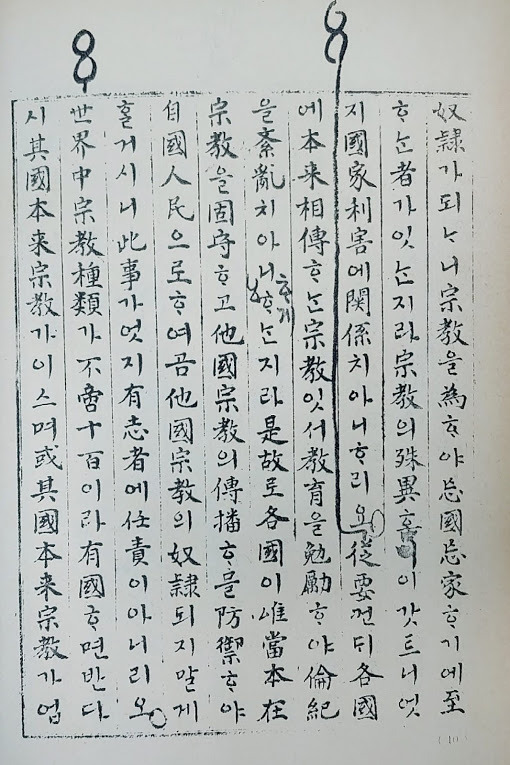 奴隷가되ᄂᆞ니宗教을為ᄒᆞ야忘國忘家ᄒᆞ기에至
ᄒᆞᄂᆞᆫ者가잇ᄂᆞᆫ지라宗教의殊異홈이갓트니엇
지國家利害에関係치아니ᄒᆞ리요要컨ᄃᆡ各國
에本来相傳ᄒᆞᄂᆞᆫ宗教잇서教育을勉勵ᄒᆞ야倫紀
을紊亂치아니ᄒᆞᄂᆞᆫ지라是故로各國이唯當本在
ᄒᆞ게
宗教을固守ᄒᆞ고他國宗教의傳播ᄒᆞ믈防禦ᄒᆞ야
自國人民으로ᄒᆞ여곰他國宗教의奴隷되지말게
ᄒᆞᆯ거시니此事가엇지有志者에任責이아니리오
世界中宗教種類가不啻十百이라有國ᄒᆞ면반다
시其國本来宗教가이스며或其國本来宗教가업